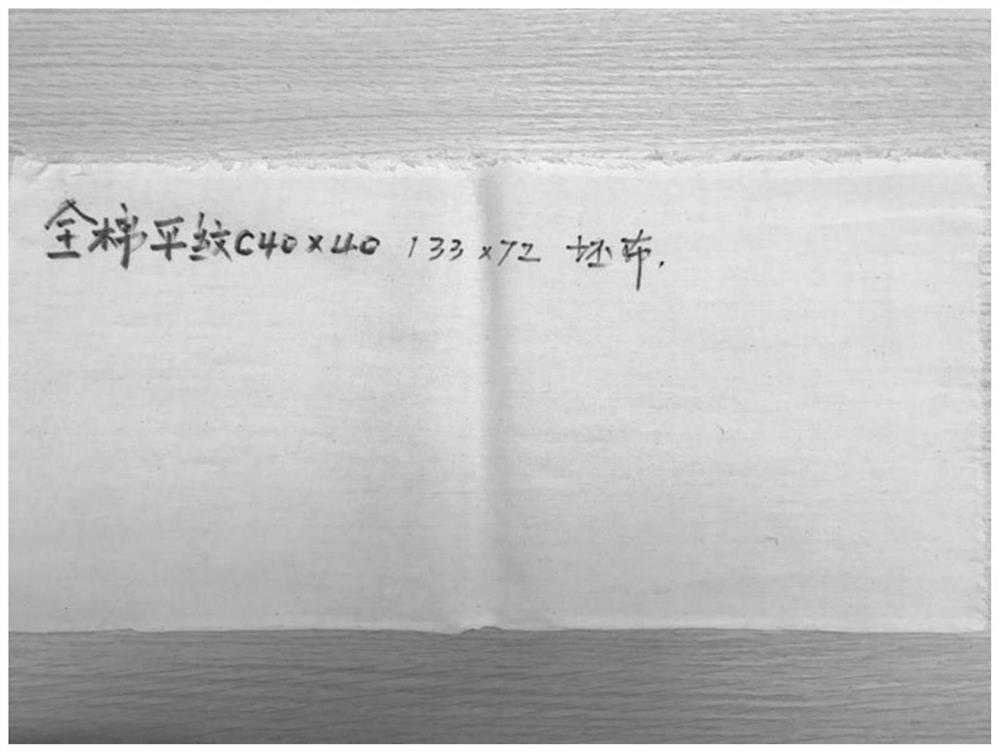 全棉平纹C40×40 133×72 坯布.